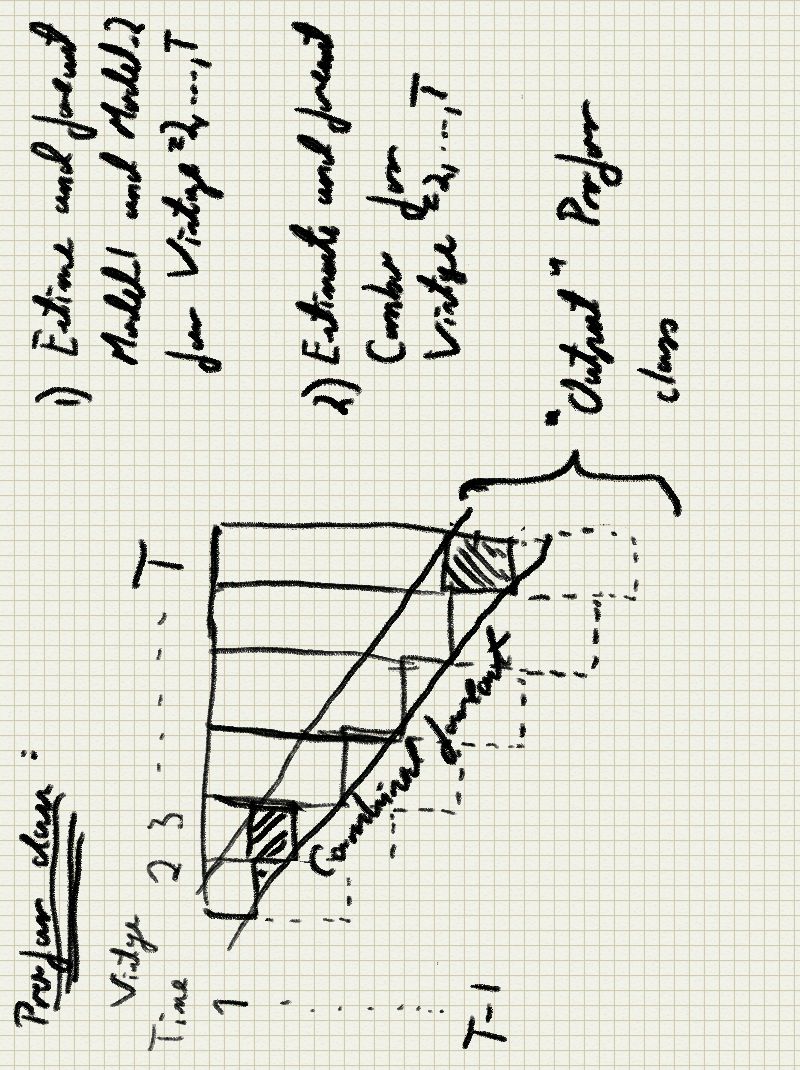 Profor class :
Vintage 2 3 T
Time
1
T-1
Combined forecast
1) Estime and forecast
Model 1 and Model 2
for Vintage = 2, ..., T
2) Estimate and forecast
Combo for
Vintage = 2, ..., T
"Output" Profor
class